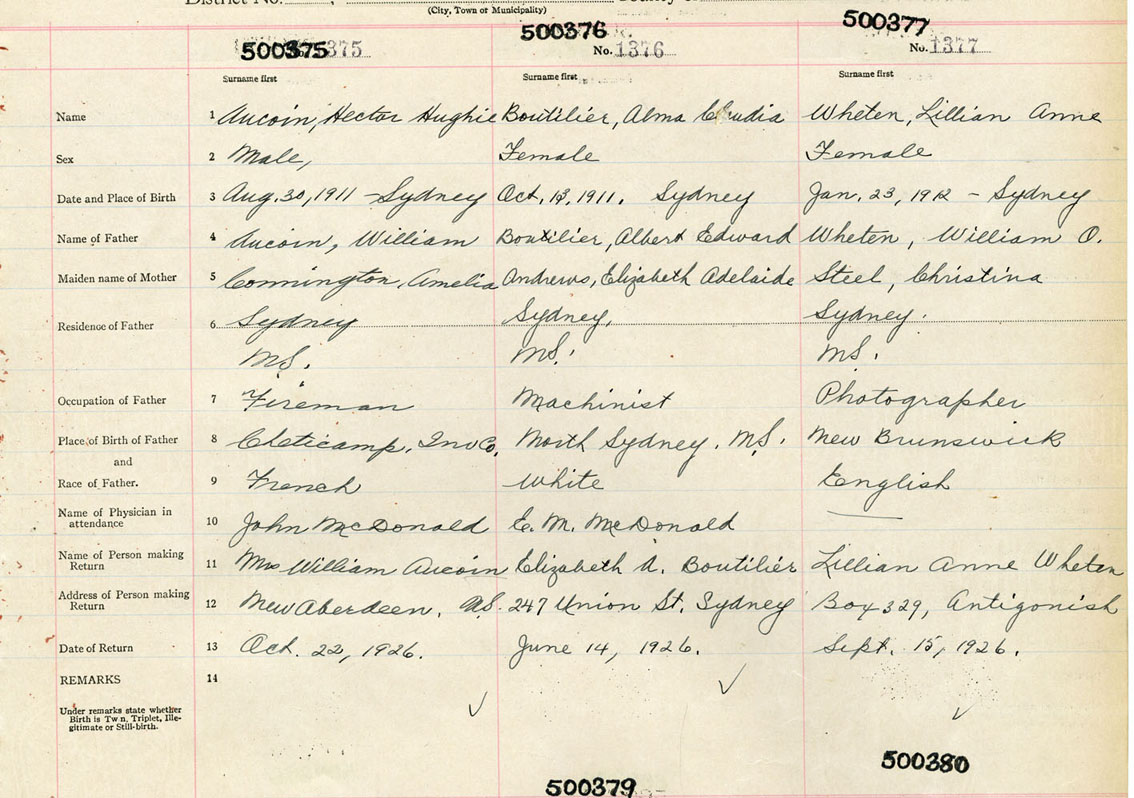 District No.
(City, Town or Municipality)
500375 375
500376 No. 1376
500377 No. 1377
Surname first Surname first Surname first
Name 1 Aucoin, Hector Hughie Boutilier, Alma Wheten, Lillian Anne
Sex 2 Male, Female Female
Date and Place of Birth 3 Aug. 30, 1911 - Sydney Oct. 13, 1911. Sydney Jan. 23, 1912 - Sydney
Name of Father 4 Aucoin, William Boutilier, Albert Edward Wheten, William O.
Maiden name of Mother 5 Connington, Amelia Andrews, Elizabeth Adelaide Steel, Christina
Residence of Father 6 Sydney Sydney, Sydney.
N.S. N.S. N.S.
Occupation of Father 7 Fireman Machinist Photographer
Place of Birth of Father 8 Cheticamp, Inv Co. North Sydney. N.S. New Brunswick
and
Race of Father. 9 French White English
Name of Physician in
attendance 10 John McDonald E. M. McDonald
Name of Person making
Return 11 Mrs William Aucoin Elizabeth A. Boutilier Lillian Anne Wheten
Address of Person making
Return 12 New Aberdeen, N.S. 247 Union St. Sydney Box 329, Antigonish
Date of Return 13 Oct. 22, 1926. June 14, 1926. Sept. 15, 1926.
REMARKS 14
Under remarks state whether
Birth is Twn, Triplet, Ille-
gitimate or Still-birth.
500379
500380